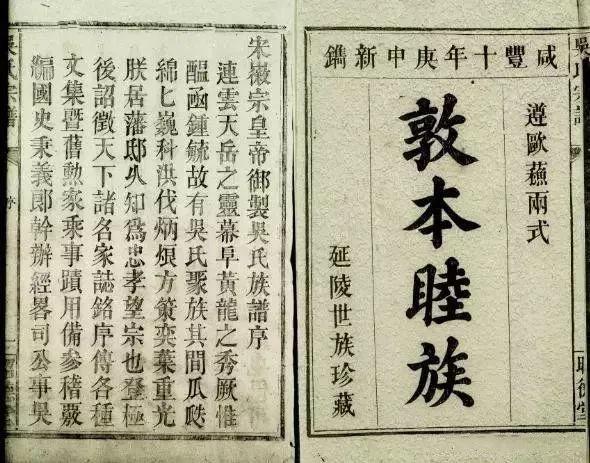 咸豐十年庚申新鐫
遵歐蘓兩式
敦本睦族
延陵世族珍藏
吳氏宗譜
宋徽宗皇帝御製吳氏族譜序
連雲天岳之靈幕阜黃龍之秀厥惟
醞凾鍾毓故有吳氏聚族其間瓜瓞
綿匕巍科洪伐炳烺方策奕葉重光
朕居藩邸久知爲忠孝望宗也登極
後詔徵天下諸名家誌銘序傳各種
文集暨舊勲家乘事蹟用備參稽覈
編國史秉義郎幹辦經畧司公事吳
吳氏宗譜
序